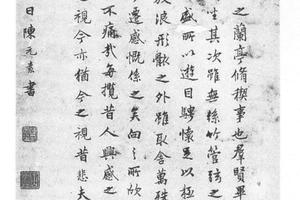 之蘭亭脩稧事也羣賢畢
坐其次雖無絲竹管弦之
盛所以遊目騁懷足以極
放浪形骸之外雖取舍萬殊
遷感慨係之矣向之所欣
不痛哉每攬昔人興感之
視今亦猶今之視昔悲夫
日陳元素書